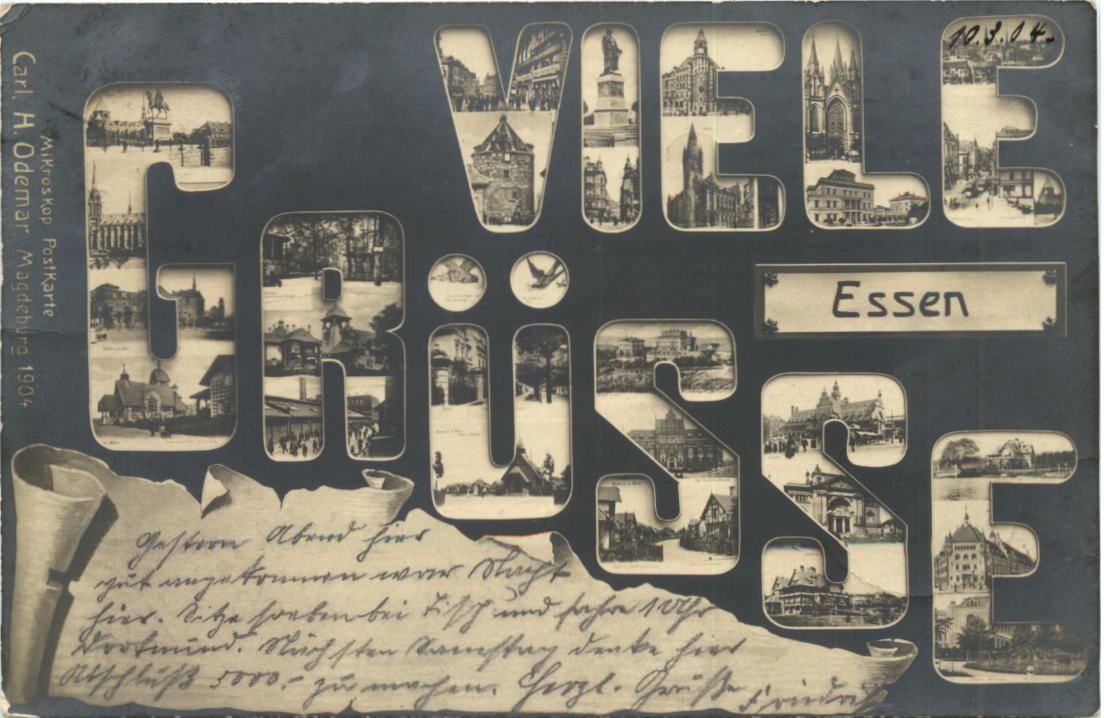 VIELE
10.3.04.
GRÜSSE
Essen
Mikroskop Postkarte
Carl. H. Odemar Magdeburg 1904
Gestern Abend hier
gut angekommen war Nacht
hier. Sitze soeben bei Tisch und fahre 1 Uhr
Dortmund. Nächsten Samstag denke hier
Abschluß 5000.- zu machen. Herzl. Grüße Friedrich